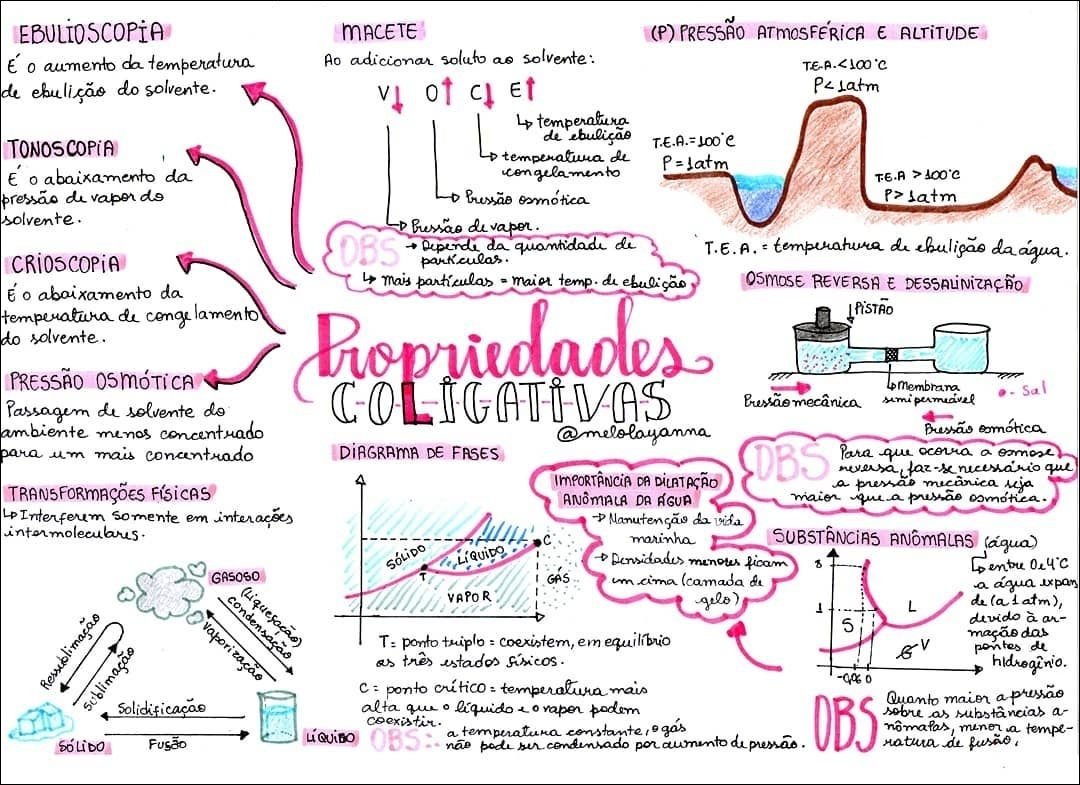 EBULIOSCOPIA
É o aumento da temperatura
de ebulição do solvente.
TONOSCOPIA
É o abaixamento da
pressão de vapor do
solvente.
CRIOSCOPIA
É o abaixamento da
temperatura de congelamento
do solvente.
PRESSÃO OSMÓTICA
Passagem de solvente do
ambiente menos concentrado
para um mais concentrado
TRANSFORMAÇÕES FÍSICAS
Interferem somente em interações
intermoleculares.
GASOSO
(Liquefação)
condensação
Vaporização
Ressublimação
Sublimação
Solidificação
Fusão
SÓLIDO
LÍQUIDO
MACETE
Ao adicionar soluto ao solvente:
V↓ O↑ C↓ E↑
temperatura
de ebulição
temperatura de
congelamento
Pressão osmótica
Pressão de vapor.
OBS → Depende da quantidade de
partículas.
mais partículas = maior temp. de ebulição
Propriedades
COLIGATIVAS
@melolayanna
DIAGRAMA DE FASES
SÓLIDO
LÍQUIDO
C
T
VAPOR
GÁS
T = ponto triplo = coexistem, em equilíbrio
as três estados físicos.
C = ponto crítico = temperatura mais
alta que o líquido e o vapor podem
coexistir.
OBS:. a temperatura constante, o gás
não pode ser condensado por aumento de pressão.
(P) PRESSÃO ATMOSFÉRICA E ALTITUDE
T.E.A. < 100°C
P < 1atm
T.E.A. = 100°C
P = 1atm
T.E.A > 100°C
P > 1atm
T.E.A. = temperatura de ebulição da água.
OSMOSE REVERSA E DESSALINIZAÇÃO
PISTÃO
Membrana
semipermeável
Sal
Pressão mecânica
Pressão osmótica
OBS Para que ocorra a osmose
reversa, faz-se necessário que
a pressão mecânica seja
maior que a pressão osmótica.
IMPORTÂNCIA DA DILATAÇÃO
ANÔMALA DA ÁGUA
→ Manutenção da vida
marinha
→ Densidades menores ficam
em cima (camada de
gelo)
SUBSTÂNCIAS ANÔMALAS (água)
8
1
S
L
V
-0,06 0
entre 0 e 4°C
a água expan
de (a 1 atm),
devido à ar-
mação das
pontes de
hidrogênio.
OBS Quanto maior a pressão
sobre as substâncias a-
nômalas, menor a tempe-
ratura de fusão.